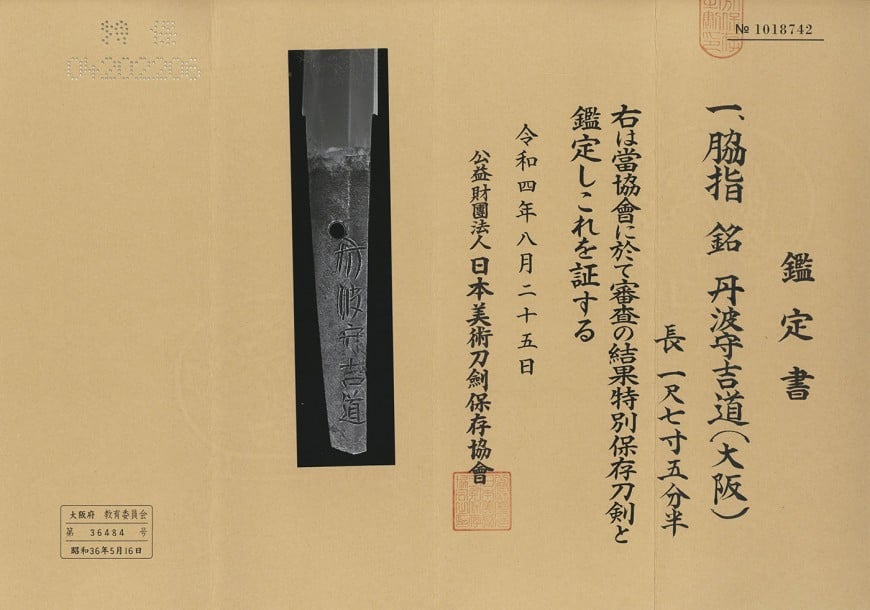 № 1018742
鑑定書
一、脇指 銘 丹波守吉道(大阪)
長 一尺七寸五分半
右は當協會に於て審査の結果特別保存刀剣と
鑑定しこれを証する
令和四年八月二十五日
公益財團法人 日本美術刀劍保存協會
丹波守吉道
04202208
大阪府 教育委員会
第 36484 号
昭和36年5月16日